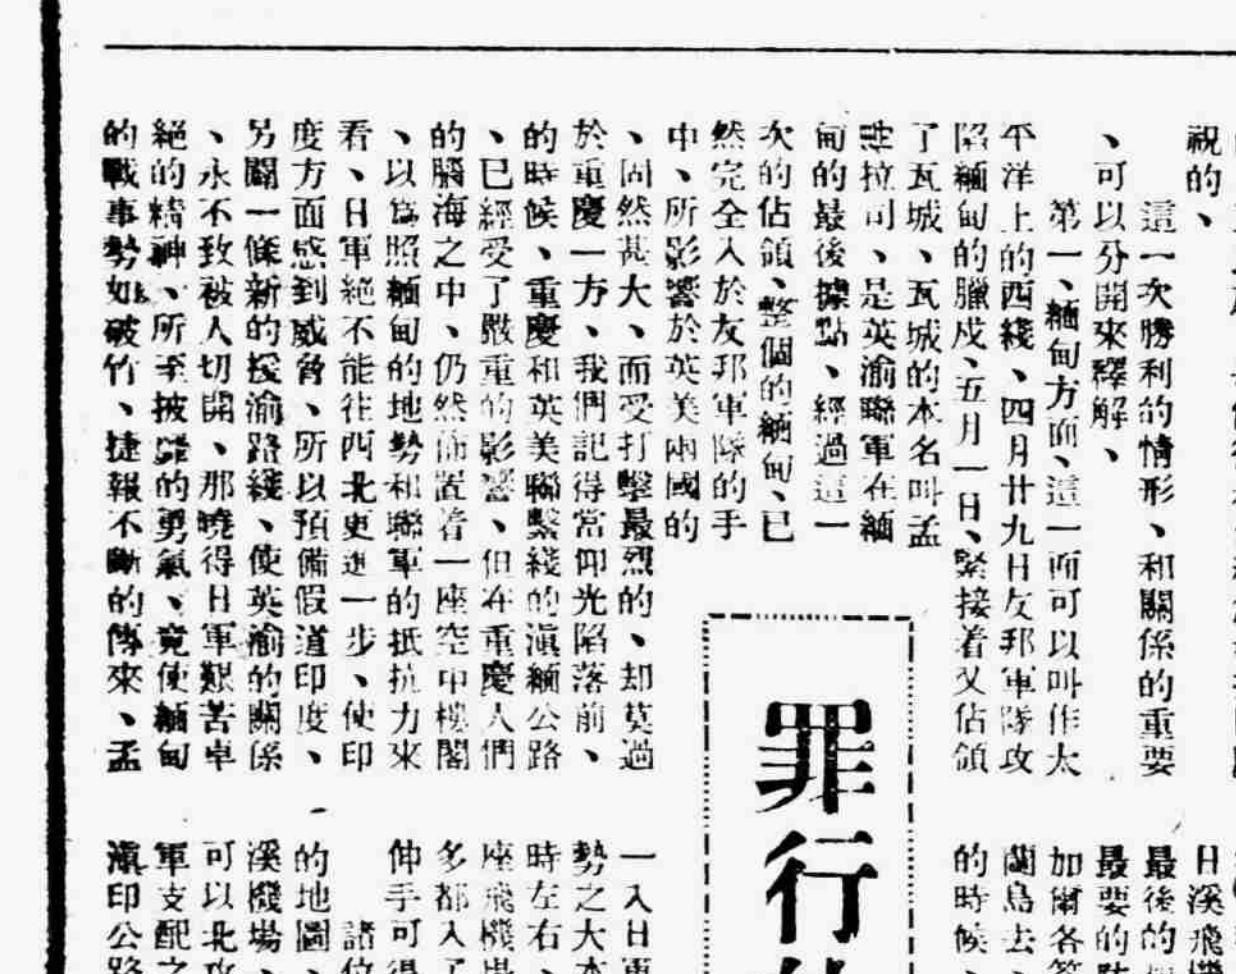 祝的、
這一次勝利的情形、和關係的重要
、可以分開來釋解、
第一、緬甸方面、這一面可以叫作太
平洋上的西綫、四月廿九日友邦軍隊攻
陷緬甸的臘戍、五月一日、緊接着又佔領
了瓦城、瓦城的本名叫孟
拉司、是英渝聯軍在緬
甸的最後據點、經過這一
次的佔領、整個的緬甸、已
然完全入於友邦軍隊的手
中、所影響於英美兩國的
、固然甚大、而受打擊最烈的、却莫過
於重慶一方、我們記得當仰光陷落前、
的時候、重慶和英美聯繫綫的滇緬公路
、已經受了嚴重的影響、但在重慶人們
的腦海之中、仍然佈置着一座空中樓閣
、以爲照緬甸的地勢和聯軍的抵抗力來
看、日軍絕不能往西北更進一步、使印
度方面感到威脅、所以預備假道印度、
另闢一條新的援渝路綫、使英渝的關係
、永不致被人切開、那曉得日軍艱苦卓
絕的精神、所至披靡的勇氣、竟使緬甸
的戰事勢如破竹、捷報不斷的傳來、孟
罪行
日溪飛機
最後的
最要的
加爾各答
蘭島去、
的時候、
一入日軍
勢之大本
時左右、
座飛機場
多都入了
伸手可得
諸位
的地圖、
溪機場、
可以北攻
軍支配之
滇印公路